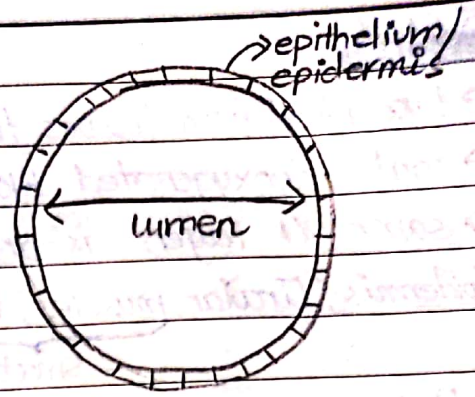 epithelium/
epidermis
lumen